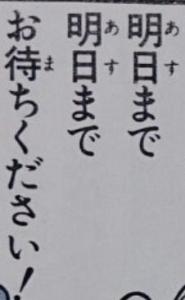 明日まで
明日まで
お待ちください！